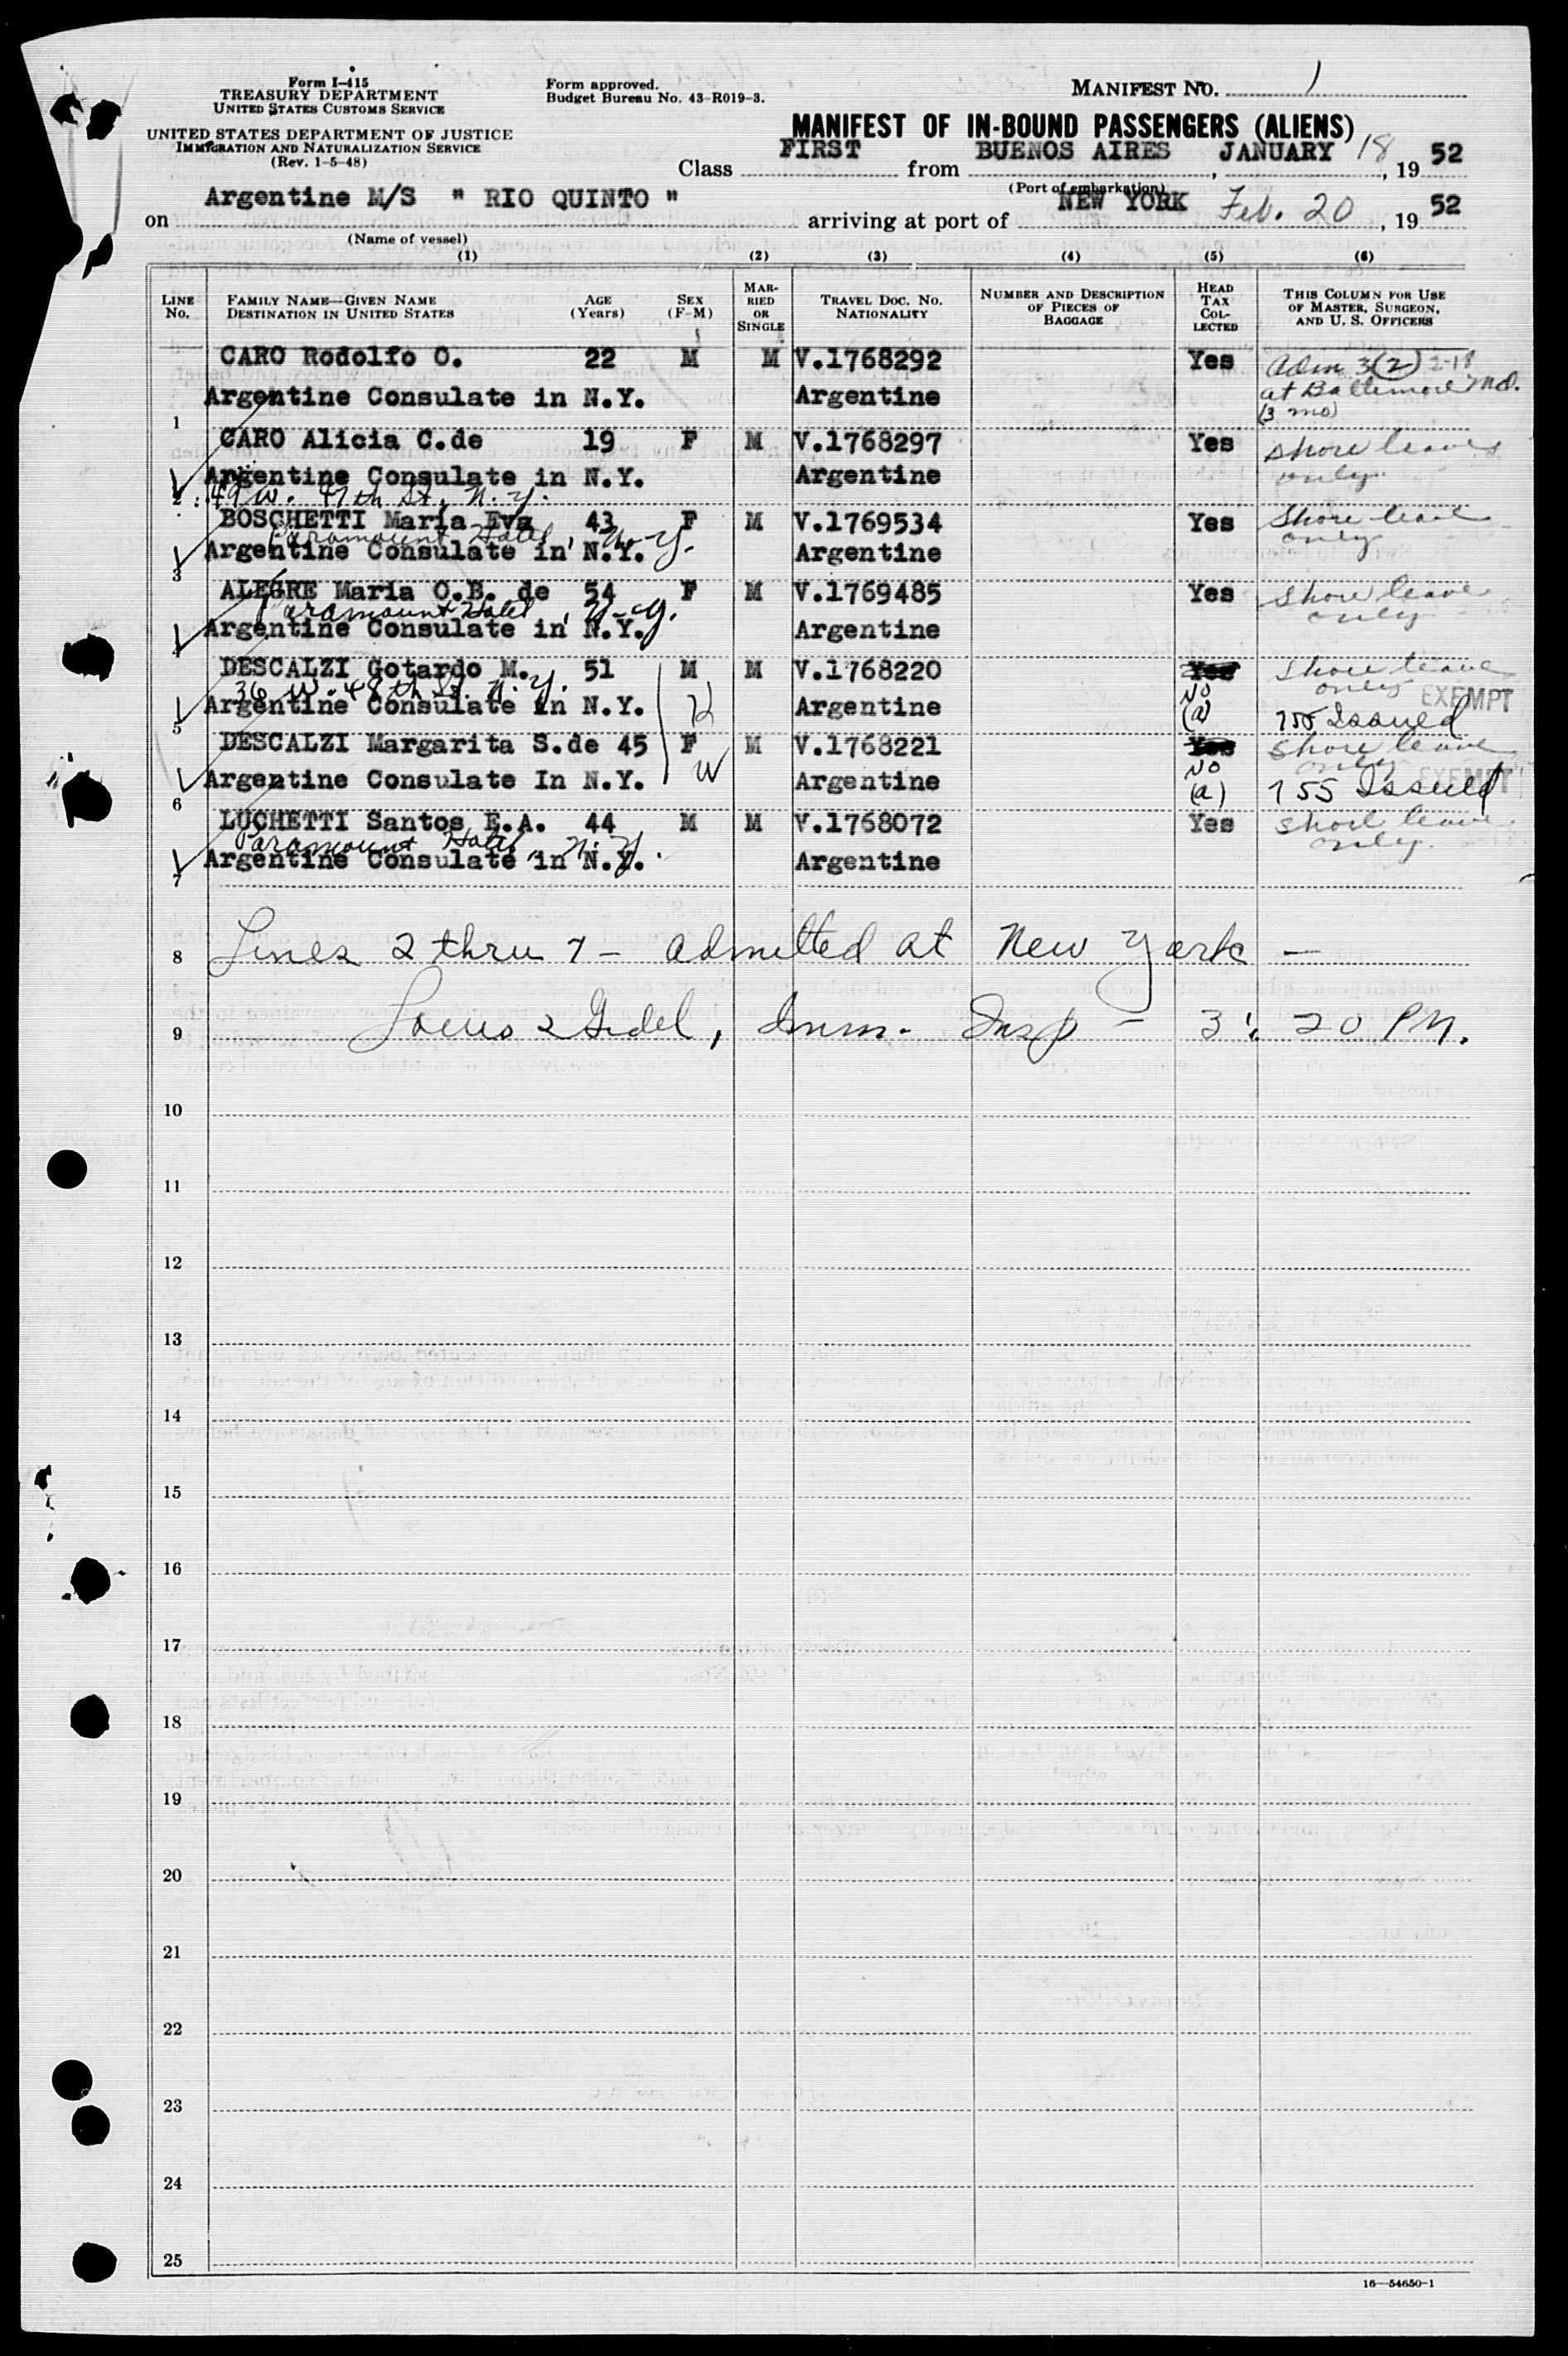 Form I-415
TREASURY DEPARTMENT
UNITED STATES CUSTOMS SERVICE
UNITED STATES DEPARTMENT OF JUSTICE
IMMIGRATION AND NATURALIZATION SERVICE
(Rev. 1-5-48)
Form approved.
Budget Bureau No. 43-R019-3.
MANIFEST NO. 1
MANIFEST OF IN-BOUND PASSENGERS (ALIENS)
Class FIRST from BUENOS AIRES, JANUARY 18, 1952
(Port of embarkation)
on Argentine M/S " RIO QUINTO " arriving at port of NEW YORK Feb. 20, 1952
(Name of vessel)
(1) (2) (3) (4) (5) (6)
LINE No. FAMILY NAME—GIVEN NAME DESTINATION IN UNITED STATES AGE (Years) SEX (F-M) MARRIED OR SINGLE TRAVEL DOC. NO. NATIONALITY NUMBER AND DESCRIPTION OF PIECES OF BAGGAGE HEAD TAX COLLECTED THIS COLUMN FOR USE OF MASTER, SURGEON, AND U. S. OFFICERS
CARO Rodolfo O. 22 M M V.1768292 Yes Adm 3(2) 2-18
Argentine Consulate in N.Y. Argentine at Baltimore Md.
1 (3 mo)
CARO Alicia C.de 19 F M V.1768297 Yes shore leave
Argentine Consulate in N.Y. Argentine only
2 49 W. 47th St, N.Y.
BOSCHETTI Maria Eva 43 F M V.1769534 Yes Shore leave
Paramount Hotel, N.Y. only
Argentine Consulate in N.Y. Argentine
3
ALEGRE Maria O.B. de 54 F M V.1769485 Yes Shore leave
Paramount Hotel, N.Y. only
Argentine Consulate in N.Y. Argentine
4
DESCALZI Gotardo M. 51 M M V.1768220 Yes shore leave
36 W. 48th St. N.Y. No only EXEMPT
Argentine Consulate in N.Y. H Argentine (a) 755 Issued
5
DESCALZI Margarita S.de 45 F M V.1768221 Yes shore leave
No only EXEMPT
Argentine Consulate In N.Y. W Argentine (a) 755 Issued
6
LUCHETTI Santos E.A. 44 M M V.1768072 Yes shore leave
Paramount Hotel, N.Y. only.
Argentine Consulate in N.Y. Argentine
7
8 Lines 2 thru 7 - admitted at New York —
9 Imm. Insp - 3:20 PM.
10
11
12
13
14
15
16
17
18
19
20
21
22
23
24
25
16—54650-1